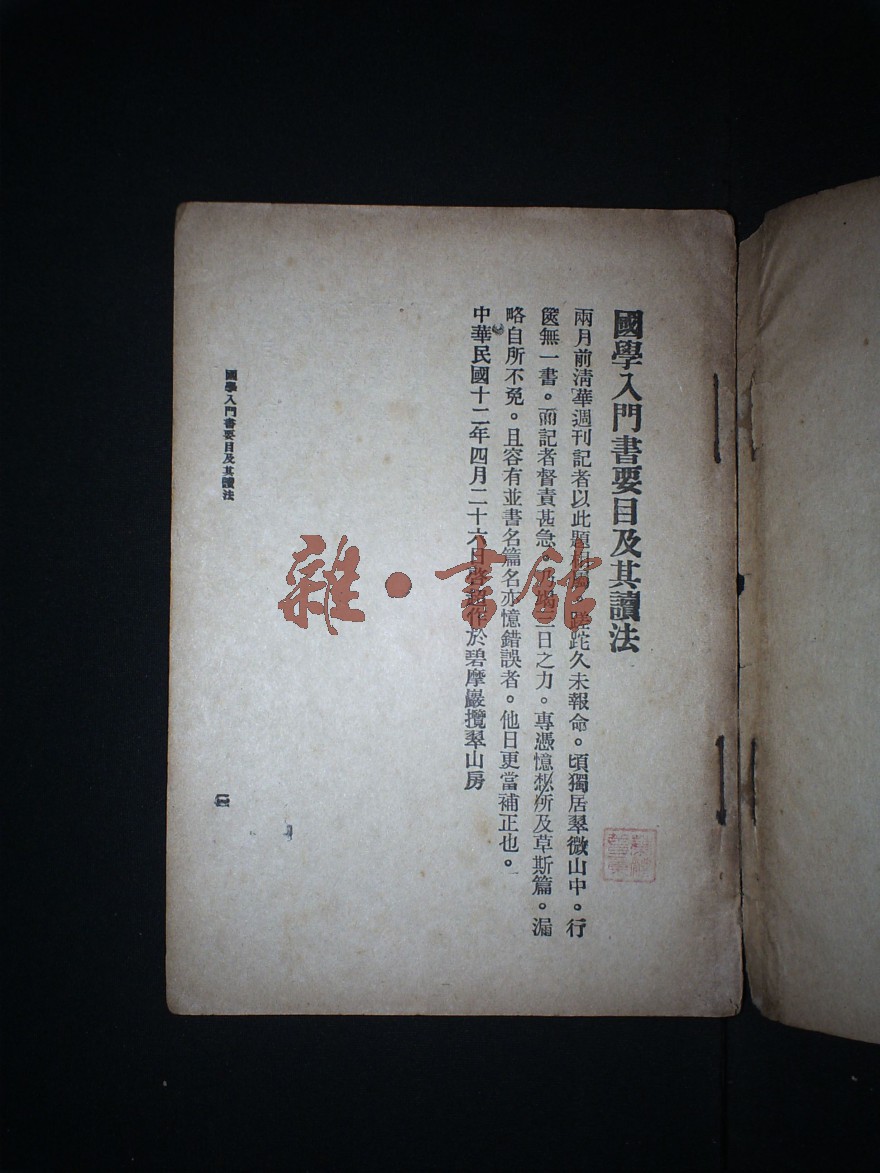 國學入門書要目及其讀法
兩月前淸華週刊記者以此題相屬。蹉跎久未報命。頃獨居翠微山中。行
篋無一書。而記者督責甚急。乃竭三日之力。專憑憶想所及草斯篇。漏
略自所不免。且容有並書名篇名亦憶錯誤者。他日更當補正也。
中華民國十二年四月二十六日啓超作於碧摩巖攬翠山房
國學入門書要目及其讀法
一
雜·書館